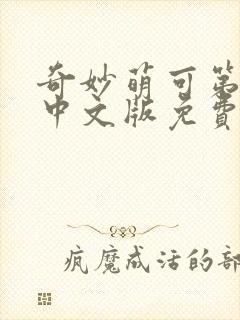 奇妙萌可第
中文版免費
疯魔成活的部